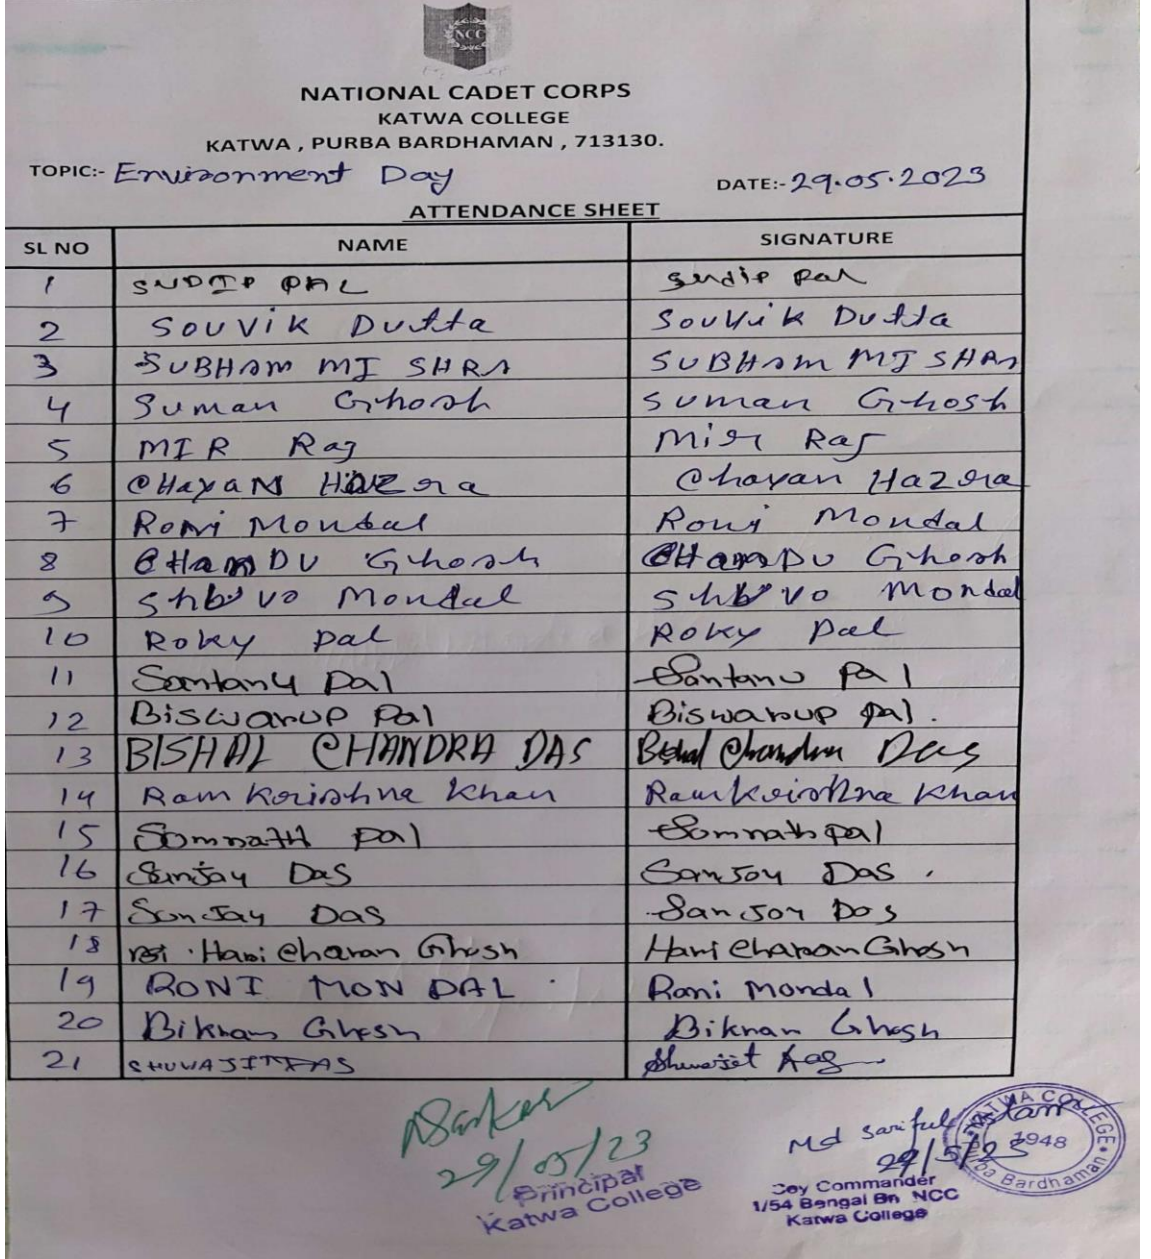 NCC
NATIONAL CADET CORPS
KATWA COLLEGE
KATWA , PURBA BARDHAMAN , 713130.
TOPIC:- Environment Day DATE:- 29.05.2023
ATTENDANCE SHEET
SL NO NAME SIGNATURE
1 SUDIP PAL Sudip Pal
2 SOUVIK Dutta Souvik Dutta
3 SUBHAM MISHRA SUBHAM MISHRA
4 Suman Ghosh Suman Ghosh
5 MIR Raj Mir Raj
6 CHAYAN HAZra Chayan Hazra
7 Roni Mondal Roni Mondal
8 CHANDU Ghosh CHANDU Ghosh
9 Mondal Mondal
10 Roky pal Roky pal
11 Santanu pal Santanu pal
12 Biswarup Pal Biswarup pal.
13 BISHAL CHANDRA DAS Bishal Chandra Das
14 Ramkrishna Khan Ramkrishna Khan
15 Somnath pal Somnath pal
16 Sanjay Das Sanjoy Das.
17 Sanjay Das Sanjoy Das
18 Hari Charan Ghosh Hari Charan Ghosh
19 RONI MONDAL Roni Mondal
20 Bikram Ghosh Bikram Ghosh
21 SHUVAJIT DAS Shuvajit Das
29/05/23
Principal
Katwa College
Md Sariful Islam
29/5/23
Coy Commander
1/54 Bengal Bn NCC
Katwa College
KATWA COLLEGE
1948
Purba Bardhaman